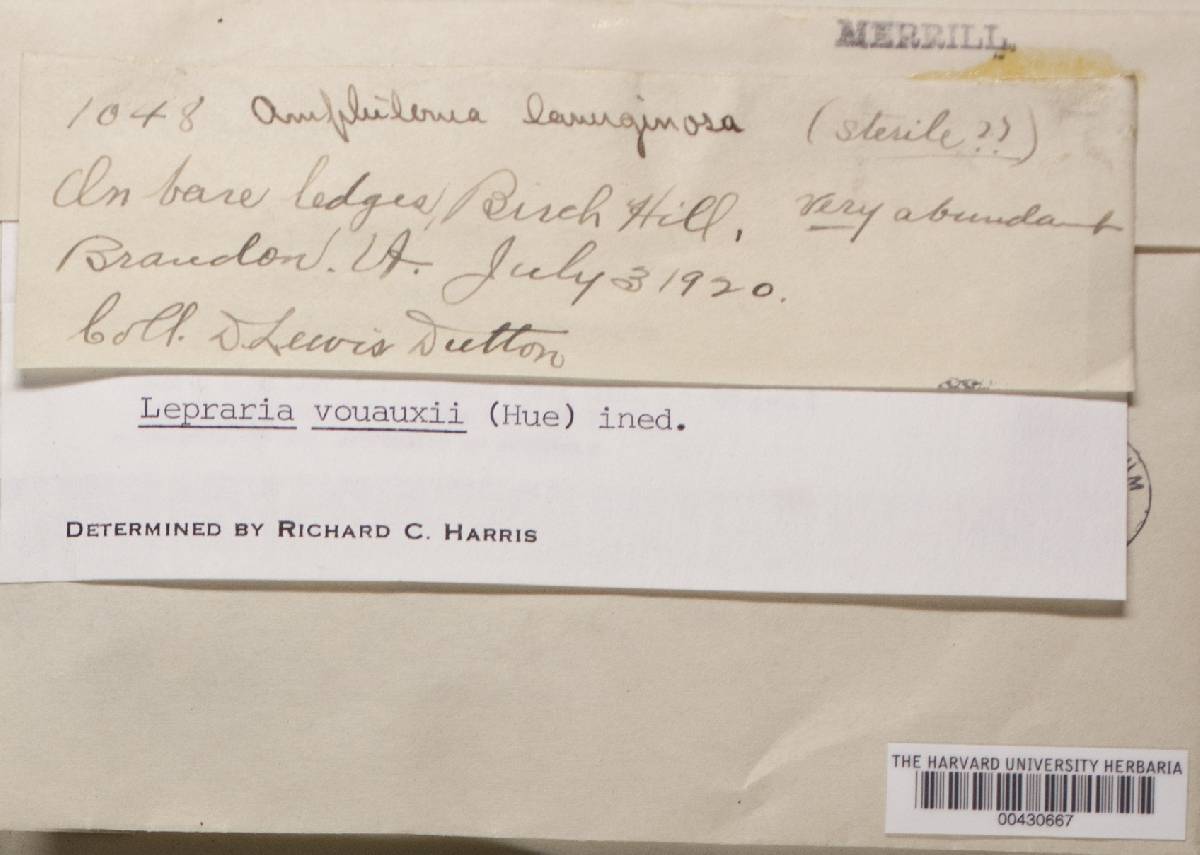 MERRILL
1048 Amphiloma lanuginosa (sterile??)
On bare ledges, Birch Hill, very abundant
Brandon. Vt. July 3 1920.
Coll. D. Lewis Dutton
Lepraria vouauxii (Hue) ined.
DETERMINED BY RICHARD C. HARRIS
THE HARVARD UNIVERSITY HERBARIA
00430667